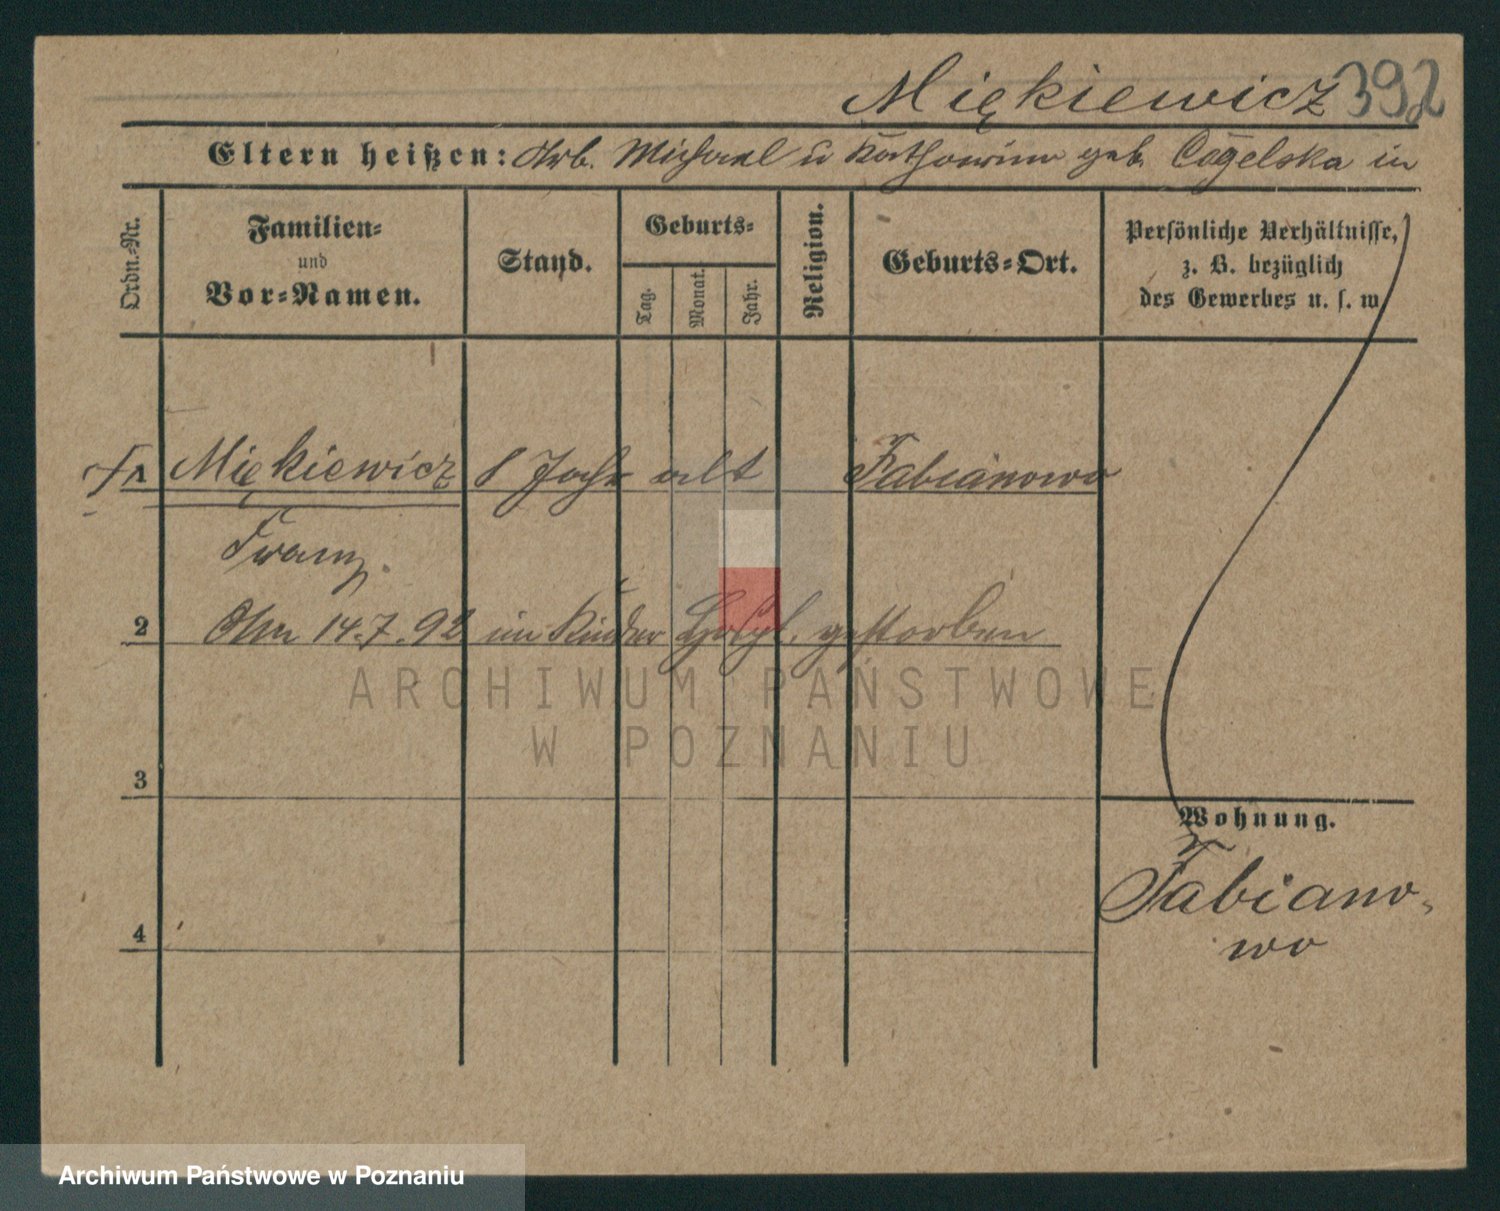 Miękiewicz 392
Eltern heißen: Arb. Michael u Katharina geb. Cegelska in
Ordn.-Nr.
Familien-
und
Vor-Namen.
Stand.
Geburts-
Tag.
Monat.
Jahr.
Religion.
Geburts-Ort.
Persönliche Verhältnisse,
z. B. bezüglich
des Gewerbes u. s. w.
1 Miękiewicz 8 Jahr alt Fabianowo
Franz.
2 Am 14.7.92 im Kinder Hospt. gestorben
ARCHIWUM PAŃSTWOWE
W POZNANIU
3
Wohnung.
Fabiano-
wo
4
Archiwum Państwowe w Poznaniu